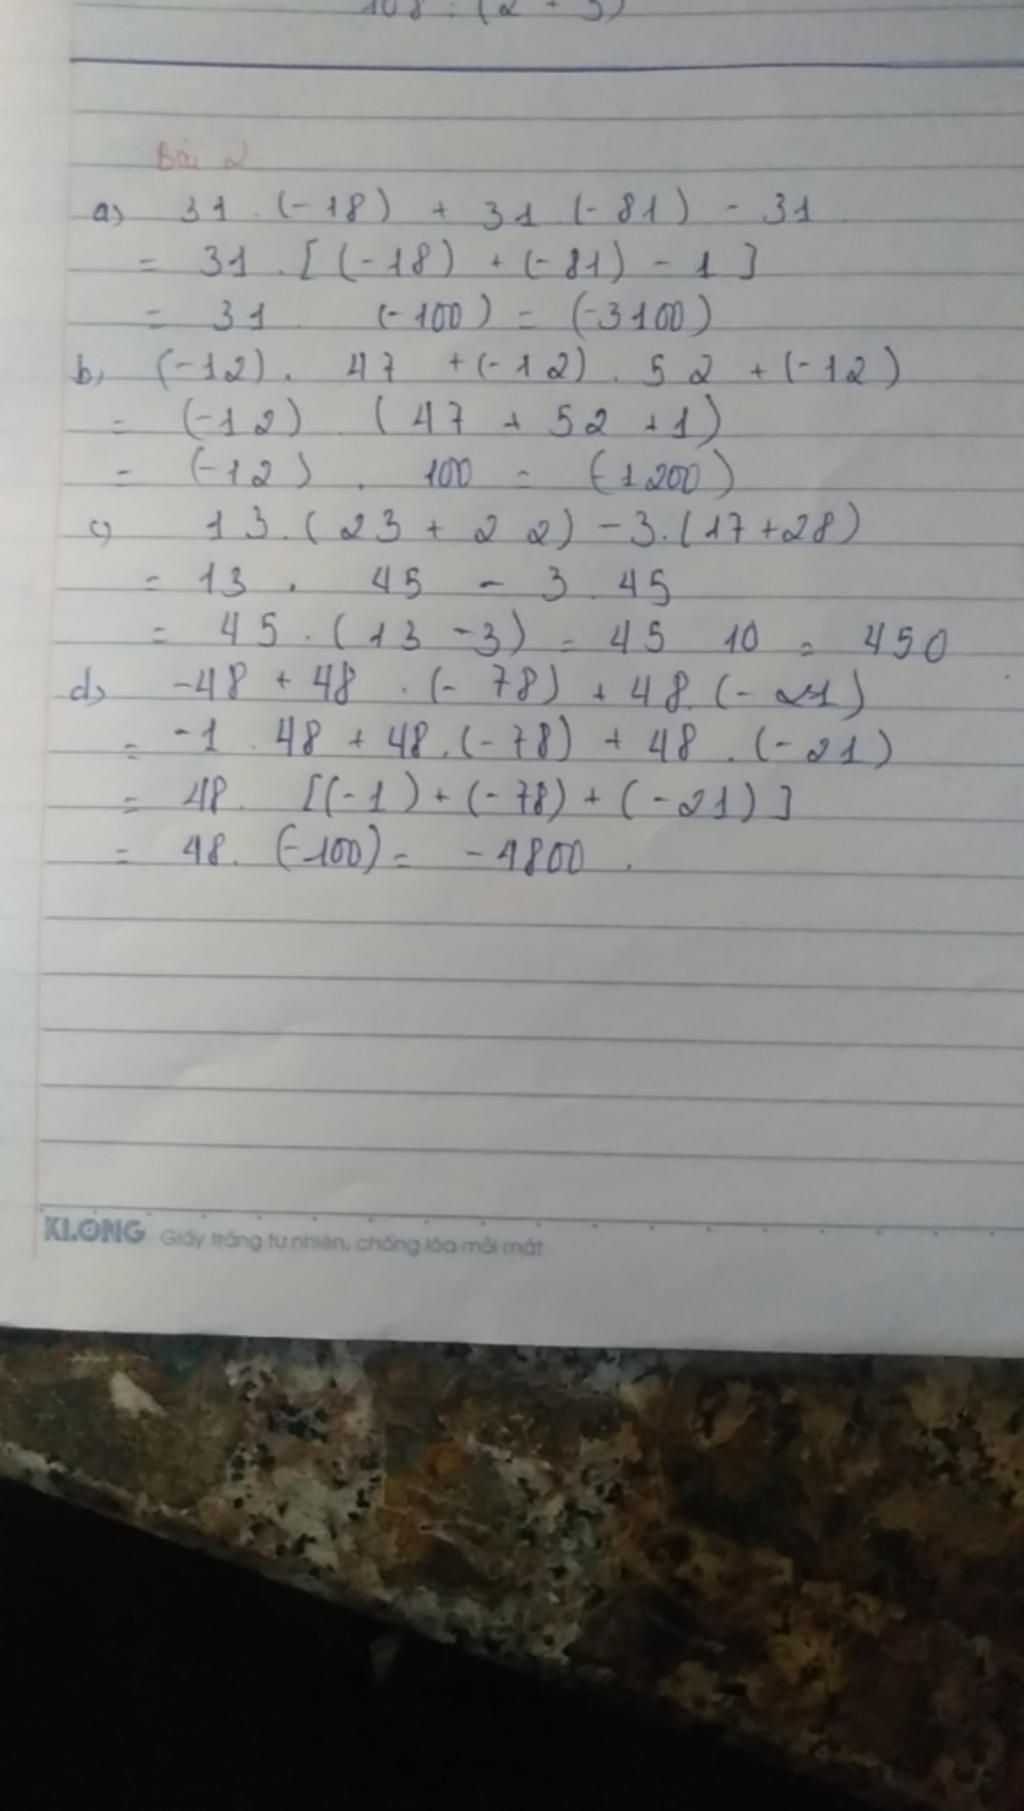 108 : (2 + 3)
Bài 2
a) 31 . (-18) + 31 . (-81) - 31
= 31 . [ (-18) + (-81) - 1 ]
= 31 . (-100) = (-3100)
b) (-12) . 47 + (-12) . 52 + (-12)
= (-12) . ( 47 + 52 + 1)
= (-12) . 100 = (-1200)
c) 13 . ( 23 + 22) - 3. (17 + 28)
= 13 . 45 - 3 . 45
= 45 . ( 13 - 3) = 45 10 = 450
d) -48 + 48 . (- 78) + 48 . (- 21)
= -1 . 48 + 48 . (-78) + 48 . (- 21)
= 48 . [(-1) + (-78) + (-21) ]
= 48 . (-100) = - 4800 .
KLONG Giấy trắng tự nhiên, chống lóa mỏi mắt